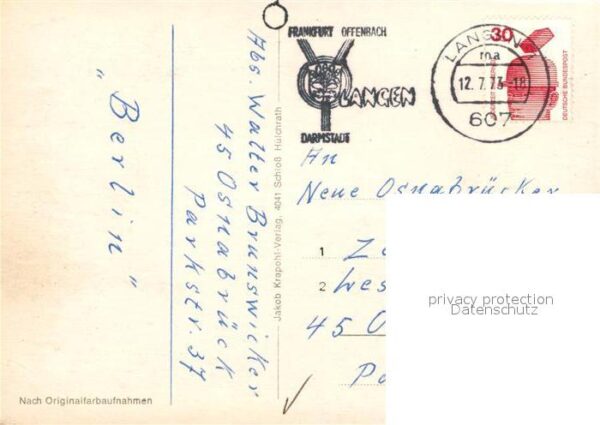 FRANKFURT OFFENBACH
LANGEN
DARMSTADT
LANGEN
ma
12.7.73-18
607
30
DEUTSCHE BUNDESPOST
An
Neue Osnabrücker
1
2
45 O
privacy protection
Datenschutz
Abs. Walter Brunswicker
45 Osnabrück
Parkstr. 37
"Berlin"
Jakob Krapohl-Verlag, 4041 Schloß Hülchrath
Nach Originalfarbaufnahmen